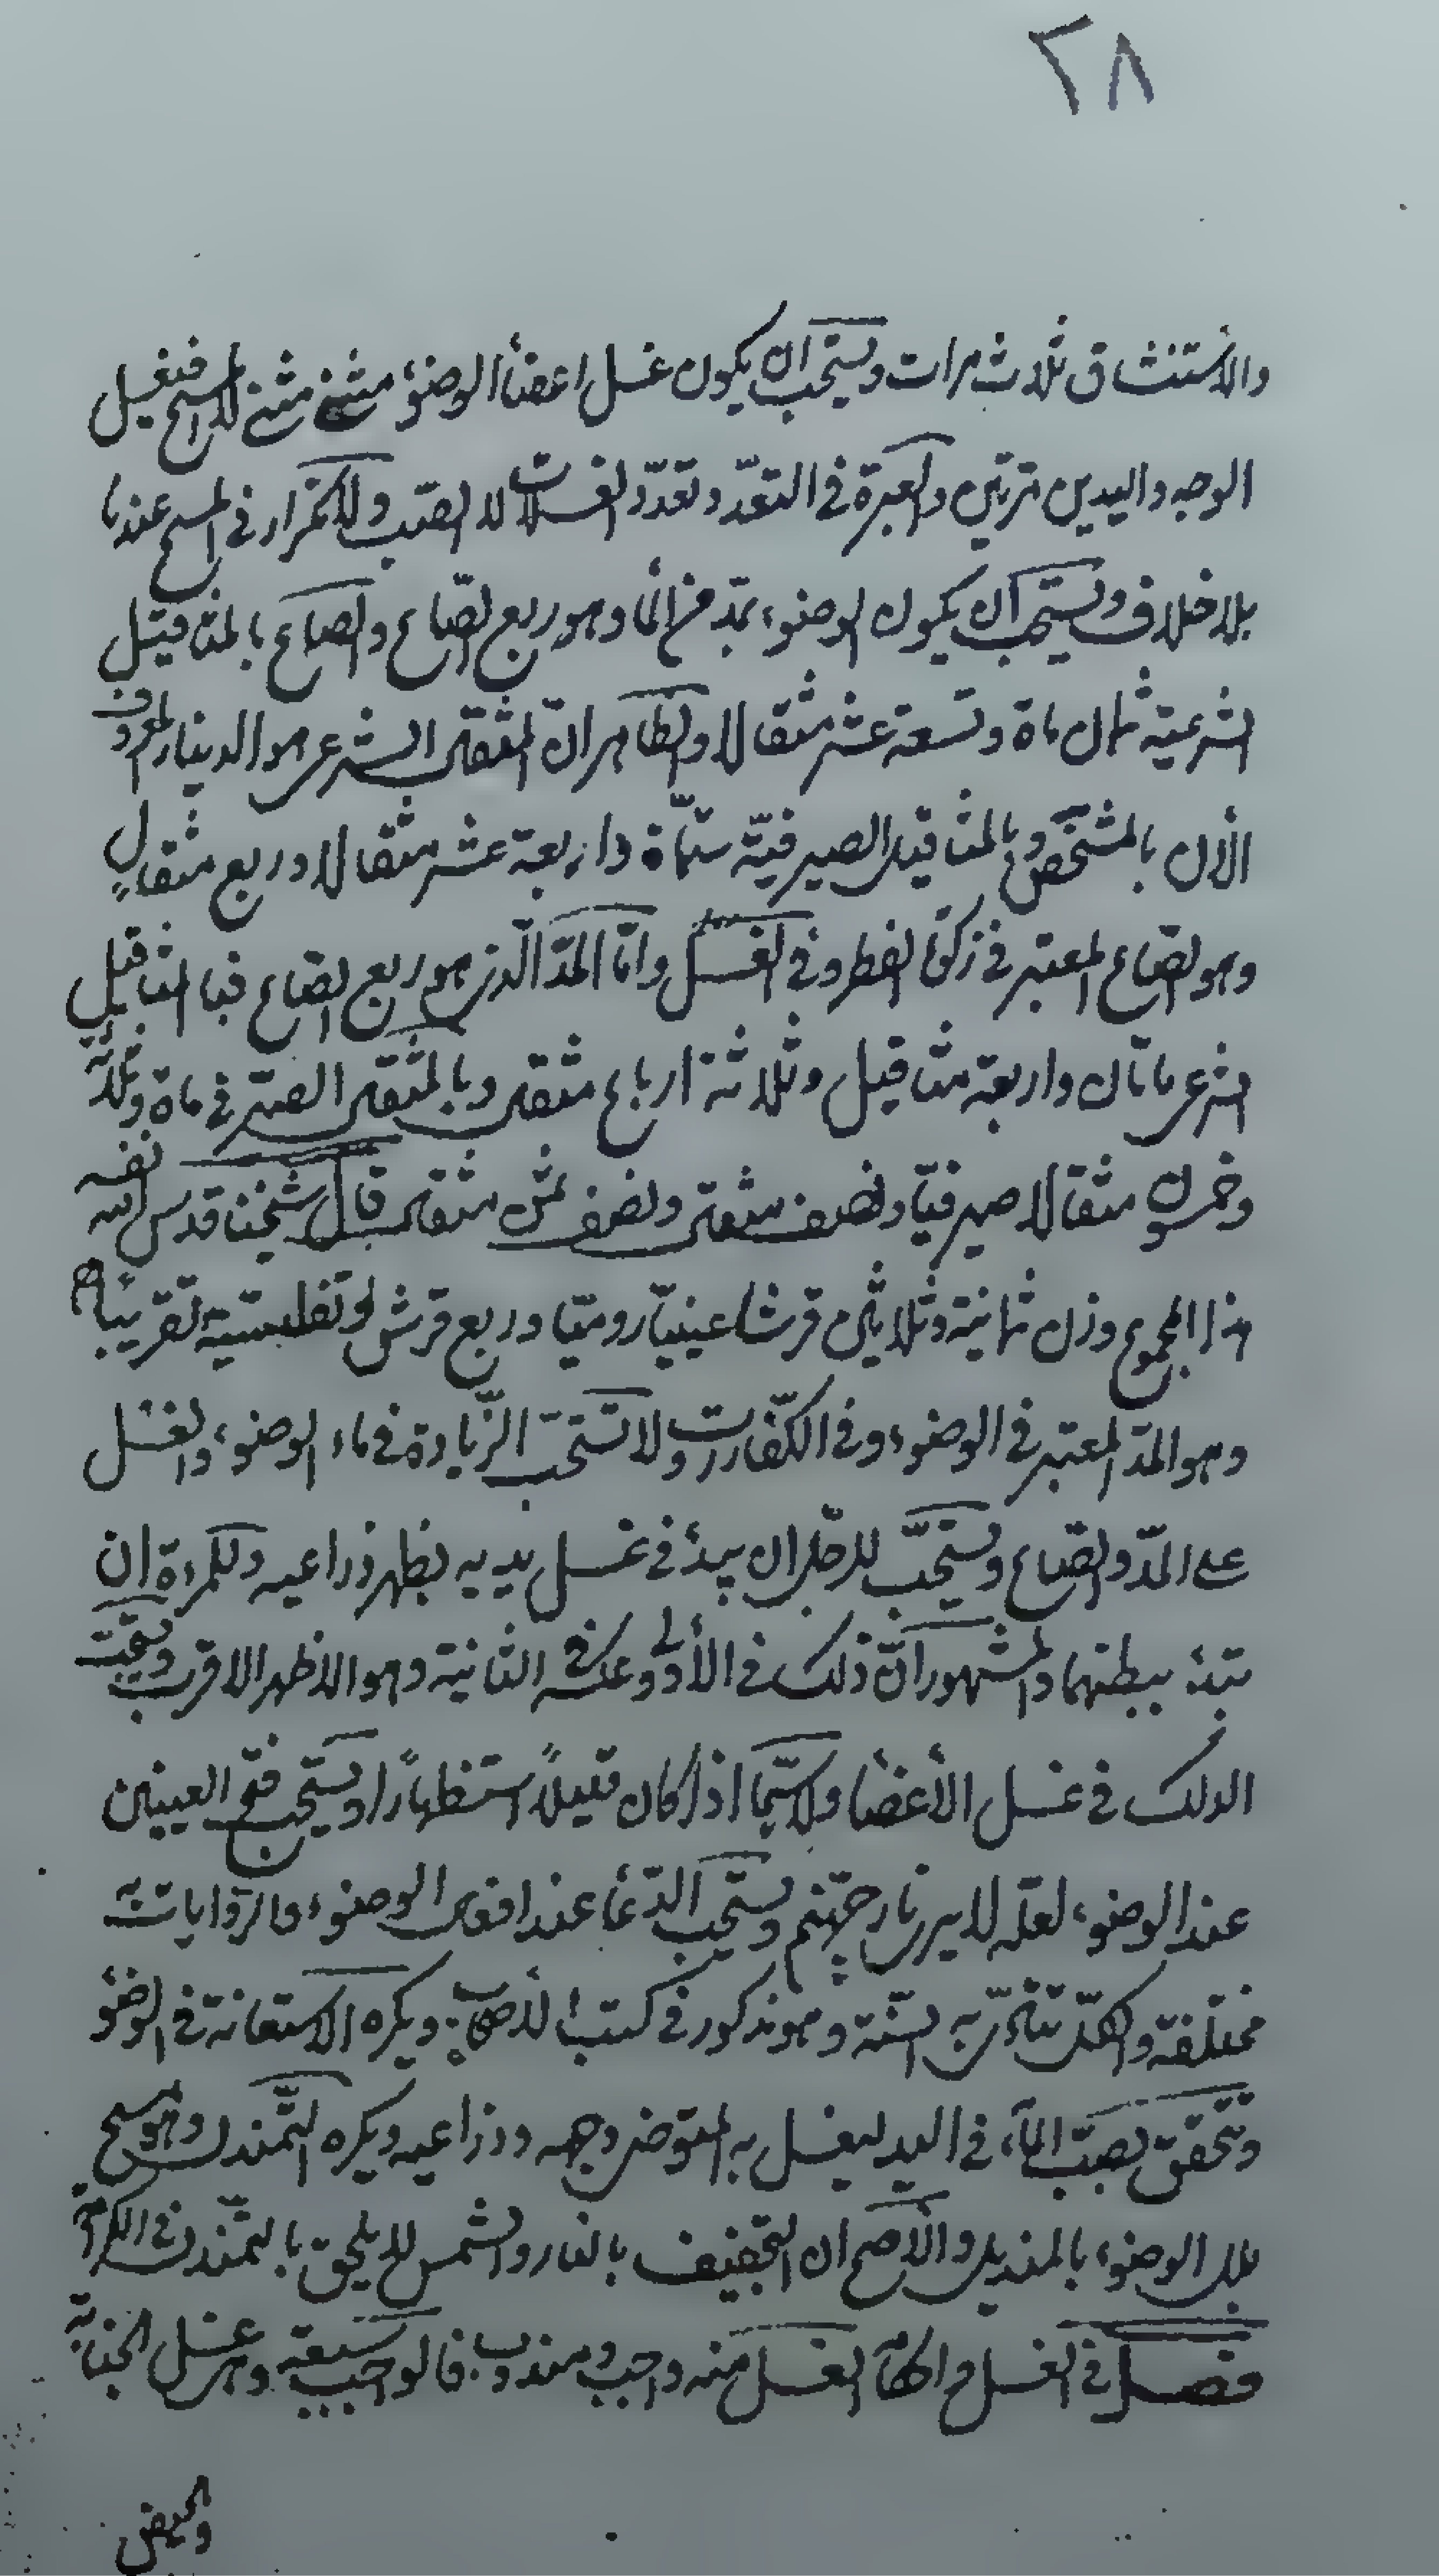 ٢٨
والأستنشاق ثلاث مرات ويستحب ان يكون غسل اعضأ الوضوء مثنى مثنى لا المسح فيغسل
الوجه واليدين مرتين والعبرة في التعدد تعدّد الغسلات لا الصّب ولا تكرار في المسح عندنا
بلا خلاف ويستحب ان يكون الوضوء بمدّ من المأ وهو ربع الصّاع والصاع بالمثاقيل
الشرعيّة ثمان ماة وتسعة عشر مثقالا والظاهر انّ المثقال الشرعي هو الدينار المعروف
الأن بالمشخّص وبالمثاقيل الصيرفيّة ستّماة واربعة عشر مثقالا وربع مثقالٍ
وهو الصّاع المعتبر في زكوة الفطر وفي الغسل وامّا المدّ الّذي هو ربع الصّاع فبالمثاقيل
الشرعي ماتان واربعة مثاقيل وثلاثة ارباع مثقال وبالمثقال الصيرفي ماة وثلاثة
وخمسون مثقالا صيرفيّا ونصف مثقال ونصف ثمن مثقال قال شيخنا قدس الله نفسه
هذا المجموع وزن ثمانية وثلاثين قرشا عينيّا روميّا وربع قرش تقريبًا
وهو المدّ المعتبر في الوضوء وفي الكفّارات ولا تستحبّ الزّيادة في ماء الوضوء والغسل
على المدّ والصّاع ويستحبّ للرجل ان يبدأ في غسل يديه بظهر ذراعيه وللمرءة ان
تبدء ببطنهما والمشهور انّ ذلك في الأولى وعكسه في الثانية وهو الاظهر الاقرب ويستحب
الدلك في غسل الأعضأ ولاسيّما اذا كان قليلاً استظهارًا ويستحب فتح العينين
عند الوضوء لعلّه لا يرى نار جهنّم ويستحب الدّعأ عند افعال الوضوء والرّوايات به
مختلفة والكلّ تتأدّى به السّنّة وهو مذكور في كتب الأصحاب ويكره الاستعانة في الوضوء
وتتحقق بصبّ المآء في اليد ليغسل به المتوضي وجهه وذراعيه ويكره التّمندل وهو مسح
بلل الوضوء بالمنديل والأصح ان التجفيف بالنار والشمس لا يلحق بالتّمندل في الكراهة
فصل في الغسل واحكامه الغسل منه واجب ومندوب فالواجب سبعة وهي غسل الجنابة
والحيض